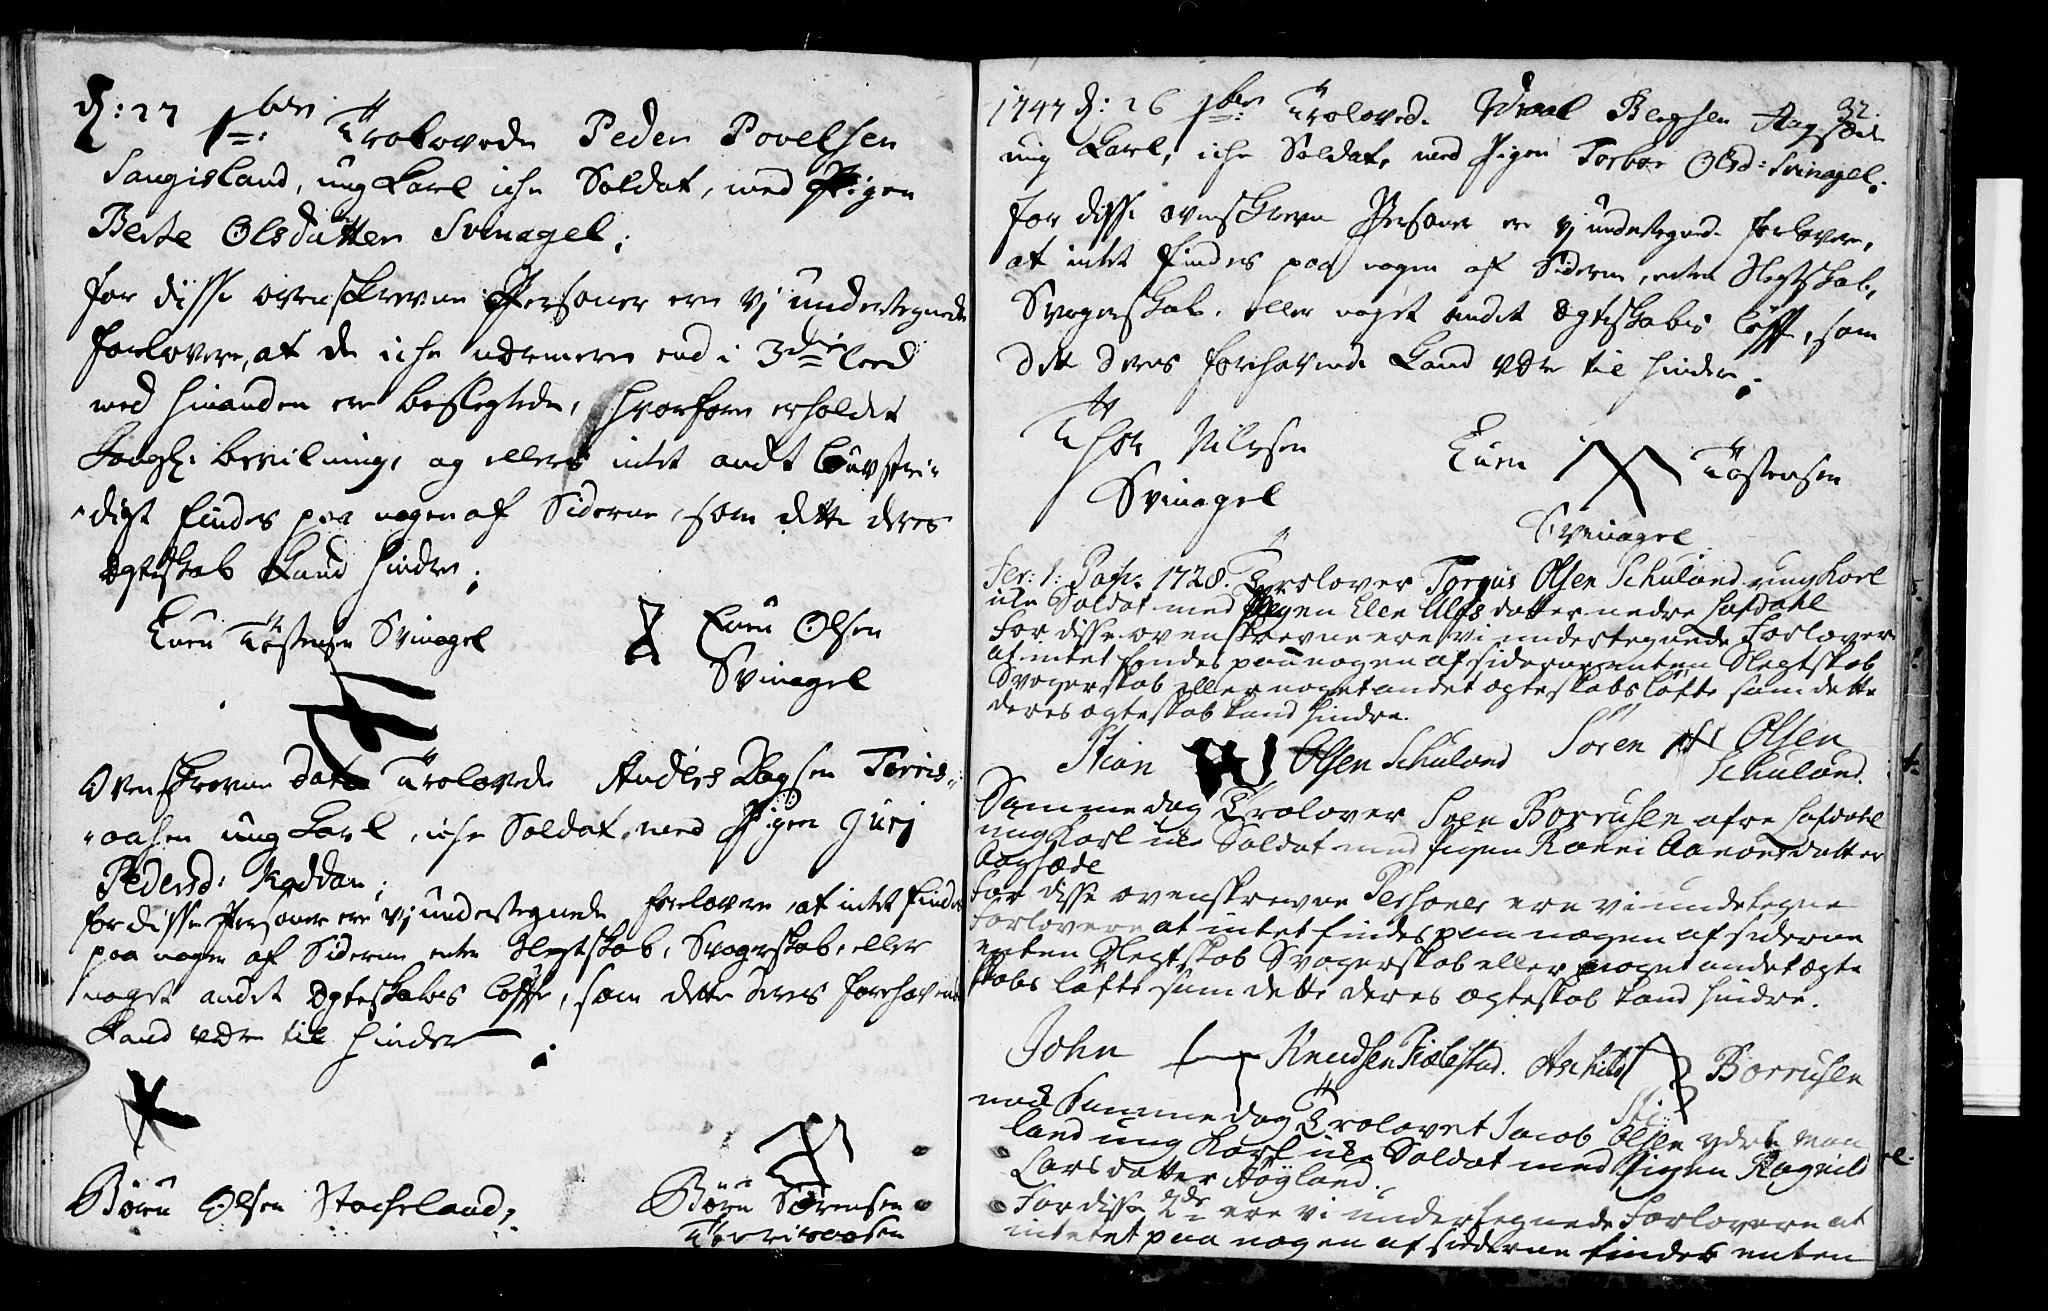 d: 27 1ber Trolovede Peder Povelsen
Saugisland, ung Karl iche Soldat, med Pigen
Berte Olsdatter Svinagel;
for disse ovenskrevne Personer ere vj undertegnede
forlovere, at de iche nærmere end i 3die leed
med hinanden ere beslegtede, hvorfore erholdet
Kongl: bevilning, og ellers intet andt
digt findes paa nogen af Siderne, som dette deres
Ægteskab Kand hindre;
Even Tostensen Svinagel
Even Olsen
Svinagel
Ovenskrevne dato Trolovede Anders Dagsen Torris-
-aasen ung Karl, iche Soldat, med Pigen Gurj
Pedersd: Roddan;
for disse Personer ere vj undertegnede forlovere, at intet findes
paa nogen af Siderne enten Slegtskab, Svogerskab, eller
noget andet Ægteskabes løffte, som dette deres forehavende
Kand være til hinder;
Børu Olsen Stocheland;
Børu Sørensen
Torrisaasen
32.
1747 d: 26 1ber Trolovede Dagsen Aagsæde
ung Karl, iche Soldat, med Pigen Torbor Olsd: Svinagel;
for disse ovenskrevne Personer ere vj undertegnede forlovere,
at intet findes paa nogen af Siderne, enten Slegtskab,
Svogerskab, eller noget andet Ægteskabes løffte, som
dette deres forehavende Kand være til hinder;
Thor Nilsen
Svinagel
Even Tostensen
Svinagel
Fer: 1: Pasch. 1728. Trolover Torgus Olsen Schuland ung Karl
ike Soldat med Pigen Elen Ulfsdatter nedre Lafdahl
For disse ovenskrevne ere vi undertegnede Forlover
at intet findes paa nogen af siderne enten Slegtskab
Svogerskab eller noget andet ægteskabs løfte som dette
deres ægteskab kand hindre.
Stian Olsen Schuland
Søren Olsen
Schuland.
Samme dag Trolover Soen Borrusen øfre Lafdahl
ung Karl ike Soldat med Pigen Ranni Aanonsdatter
Aagsæde
For disse ovenskrevne Personer ere vi undetegne
Forlovere at intet findes paa nogen af siderne
enten Slegtskab Svogerskab eller noget andet ægte
skabs løfte som dette deres ægteskab kand hindre.
John Knudsen Fiælestad. Aschild Borrusen
nok samme dag Trolovet Jacob Olsen ydre
land ung Karl ike Soldat med Pigen Ragnild
Larsdatter Høyland.
For disse 2de ere vi undertegnede Forlovere at
intetet paa nogen af siderne findes enten